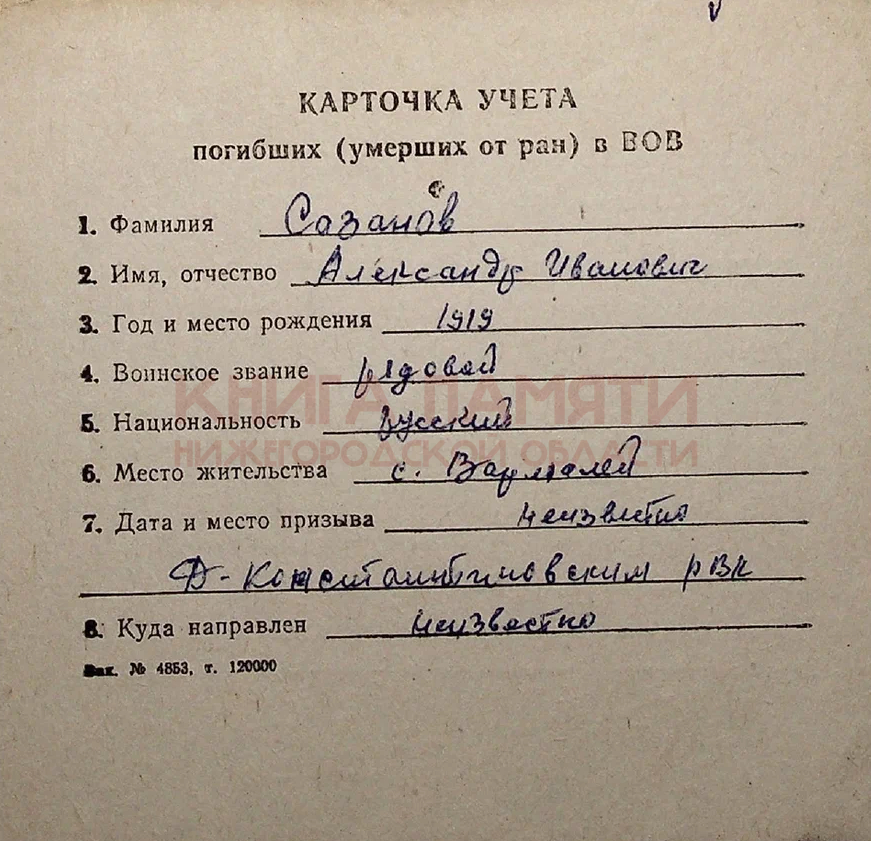 КАРТОЧКА УЧЕТА
погибших (умерших от ран) в ВОВ
1. Фамилия Сазанов
2. Имя, отчество Александр Иванович
3. Год и место рождения 1919
4. Воинское звание рядовой
КНИГА ПАМЯТИ
5. Национальность русский
НИЖЕГОРОДСКОЙ ОБЛАСТИ
6. Место жительства с. Вармалей
7. Дата и место призыва неизвестно
Д-Константиновским рвк
8. Куда направлен неизвестно
Зак. № 4853, т. 120000